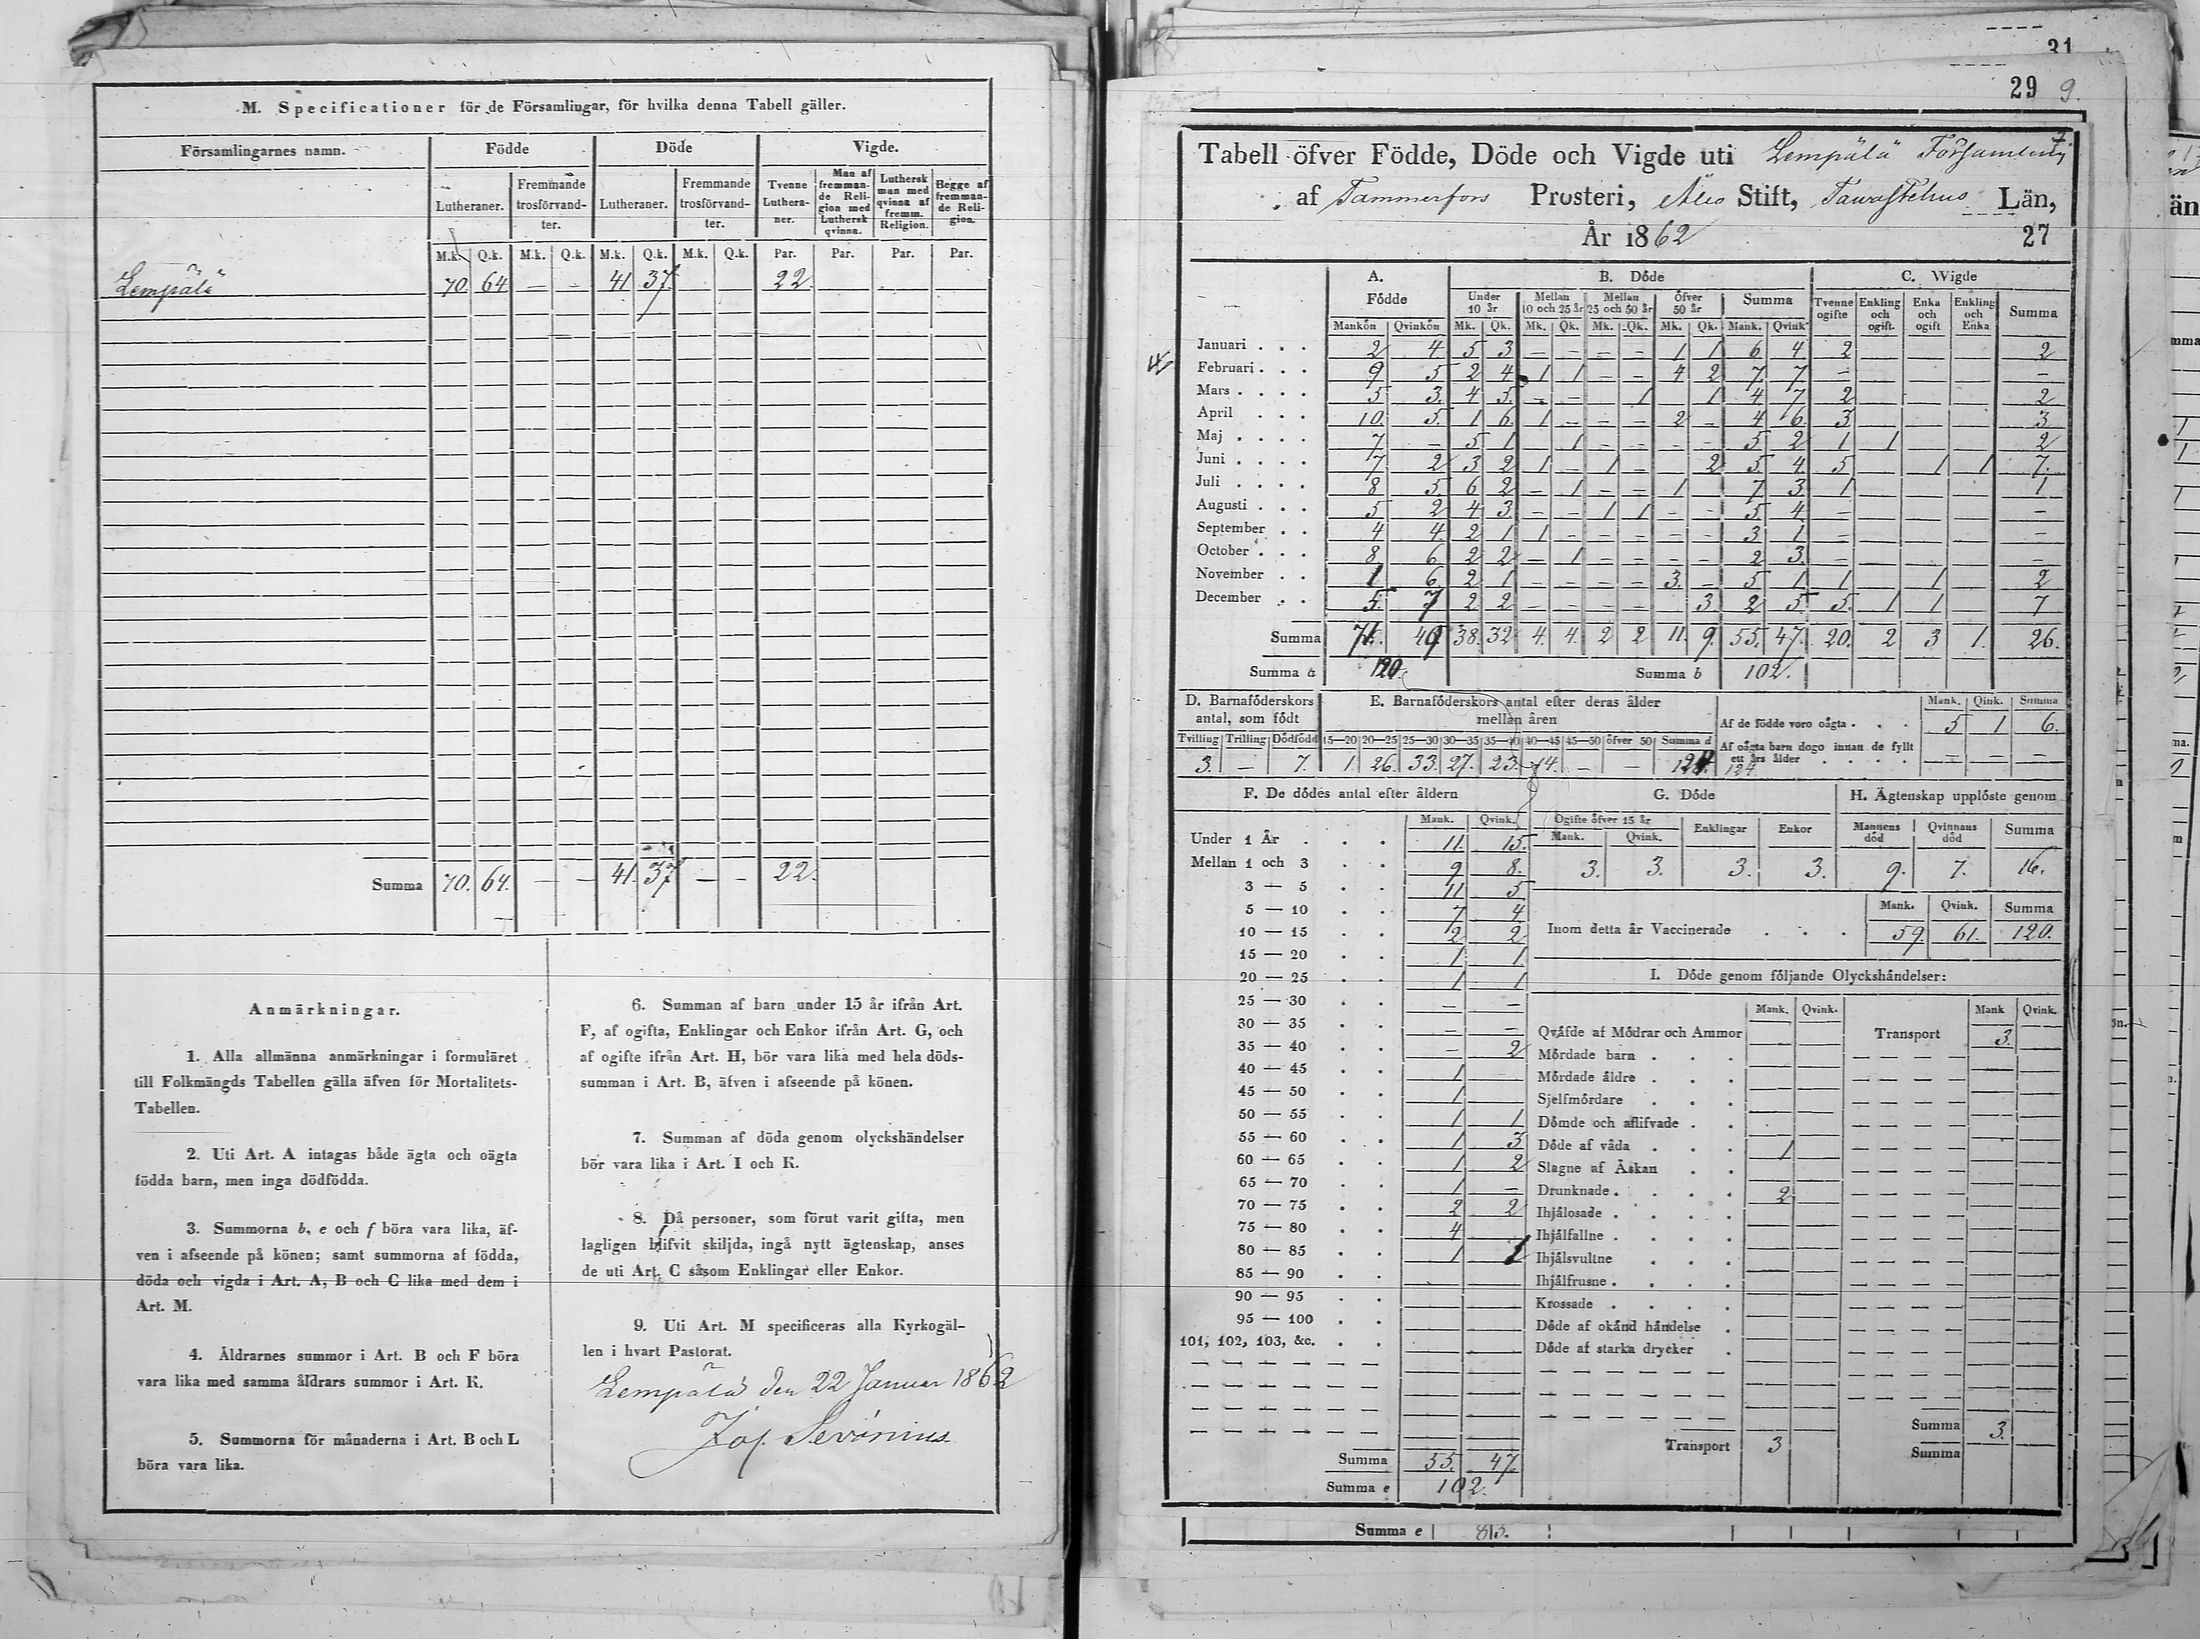 M. Specificationer för de Församlingar, för hvilka denna Tabell gäller.
Församlingarnes namn. Födde Döde Vigde.
Lutheraner. Fremmande trosförvandter. Lutheraner. Fremmande trosförvandter. Tvenne Lutheraner. Man af fremmande Religion med Luthersk qvinna. Luthersk man med qvinna af fremm. Religion. Begge af fremmande Religion.
M.k. Q.k. M.k. Q.k. M.k. Q.k. M.k. Q.k. Par. Par. Par. Par.
Lempälä 70 64 — — 41 37 22
Summa 70. 64. — — 41. 37 — — 22.
Anmärkningar.
1. Alla allmänna anmärkningar i formuläret
till Folkmängds Tabellen gälla äfven för Mortalitets-
Tabellen.
2. Uti Art. A intagas både ägta och oägta
födda barn, men inga dödfödda.
3. Summorna b, e och f böra vara lika, äf-
ven i afseende på könen; samt summorna af födda,
döda och vigda i Art. A, B och C lika med dem i
Art. M.
4. Åldrarnes summor i Art. B och F böra
vara lika med samma åldrars summor i Art. K.
5. Summorna för månaderna i Art. B och L
böra vara lika.
6. Summan af barn under 15 år ifrån Art.
F, af ogifta, Enklingar och Enkor ifrån Art. G, och
af ogifte ifrån Art. H, bör vara lika med hela döds-
summan i Art. B, äfven i afseende på könen.
7. Summan af döda genom olyckshändelser
bör vara lika i Art. I och K.
8. Då personer, som förut varit gifta, men
lagligen blifvit skiljda, ingå nytt ägtenskap, anses
de uti Art. C såsom Enklingar eller Enkor.
9. Uti Art. M specificeras alla Kyrkogäl-
len i hvart Pastorat.
Lempälä den 22 Januar 1862
Jos. Sevónius.
31
29 9.
Tabell öfver Födde, Döde och Vigde uti Lempälä Församling
af Tammerfors Prosteri, Åbo Stift, Tavastehus Län,
År 1862 27
A. Födde B. Döde C. Wigde
Under 10 år Mellan 10 och 25 år Mellan 25 och 50 år Öfver 50 år Summa Tvenne ogifte Enkling och ogift. Enka och ogift Enkling och Enka Summa
Mankön Qvinkön Mk. Qk. Mk. Qk. Mk. Qk. Mk. Qk. Mank. Qvink
Januari . . . 2 4 5 3 – – – – 1 1 6 4 2 2
Februari . . . 9 5 2 4 1 1 – – 4 2 7 7 – –
Mars . . . . 5 3. 4 5. – – 1 1 4 7 2 2
April . . . 10. 5. 1 6. 1 – – – 2 – 4 6 3 3
Maj . . . . 7 – 5 1 1 – – – – 5 2 1 1 2
Juni . . . . 7 2 3 2 1 – 1 – 2 5. 4. 5 1 1 7.
Juli . . . . 8 5. 6 2 – 1 – – 1 7 3 1 1
Augusti . . . 5 2 4 3 – – 1 1 – – 5 4 – –
September . . 4 4. 2 1 1 – – – – – 3 1 – –
October . . . 8 6 2 2 – 1 – – – – 2 3. – –
November . . 1 6. 2 1 – – – – 3. – 5 1 1 1 2
December . . 5. 7 2 2 – – – – 3 2 5 5. 1 1 7
Summa 71. 49 38. 32 4. 4. 2 2 11. 9. 55. 47. 20. 2 3 1. 26.
Summa a 120. Summa b 102.
D. Barnaföderskors antal, som födt
E. Barnaföderskors antal efter deras ålder mellan åren
Mank. Qink. Summa
Af de födde voro oägta . . . 5 1 6.
Tvilling Trilling Dödfödd 15—20 20—25 25—30 30—35 35—40 40—45 45—50 öfver 50 Summa d
Af oägta barn dogo innan de fyllt ett års ålder . . . . — — —
3. — 7. 1. 26. 33. 27. 23. 14. — — 124. 124.
F. De dödes antal efter åldern
Mank. Qvink.
Under 1 År . . . 11. 15.
Mellan 1 och 3 . . 9 8.
3 — 5 . . 11 5
5 — 10 . . 7 4
10 — 15 . . 2 2
15 — 20 . . 1 1
20 — 25 . . 1 1
25 — 30 . . – –
30 — 35 . . – –
35 — 40 . . – 2
40 — 45 . . 1
45 — 50 . . 1
50 — 55 . . 1 1
55 — 60 . . 1 3
60 — 65 . . 1 2
65 — 70 . . 1 –
70 — 75 . . 2 2
75 — 80 . . 4
80 — 85 . . 1 1
85 — 90 . .
90 — 95 . .
95 — 100 . .
101, 102, 103, &c. . .
Summa 55. 47.
Summa e 102.
G. Döde
Ogifte öfver 15 år Enklingar Enkor
Mank. Qvink.
3. 3. 3. 3.
H. Ägtenskap upplöste genom
Mannens död Qvinnans död Summa
9. 7. 16.
Mank. Qvink. Summa
Inom detta år Vaccinerade . . . 59. 61. 120.
I. Döde genom följande Olyckshändelser:
Mank. Qvink. Mank Qvink.
Qväfde af Mödrar och Ammor Transport 3.
Mördade barn . . .
Mördade äldre . . .
Sjelfmördare . . .
Dömde och aflifvade . .
Döde af våda . . . 1
Slagne af Åskan . .
Drunknade . . . . 2
Ihjälosade . . . .
Ihjälfallne . . . .
Ihjälsvultne . . .
Ihjälfrusne . . . .
Krossade . . . .
Döde af okänd händelse .
Döde af starka drycker .
Summa 3.
Transport 3 Summa
Summa e 813.